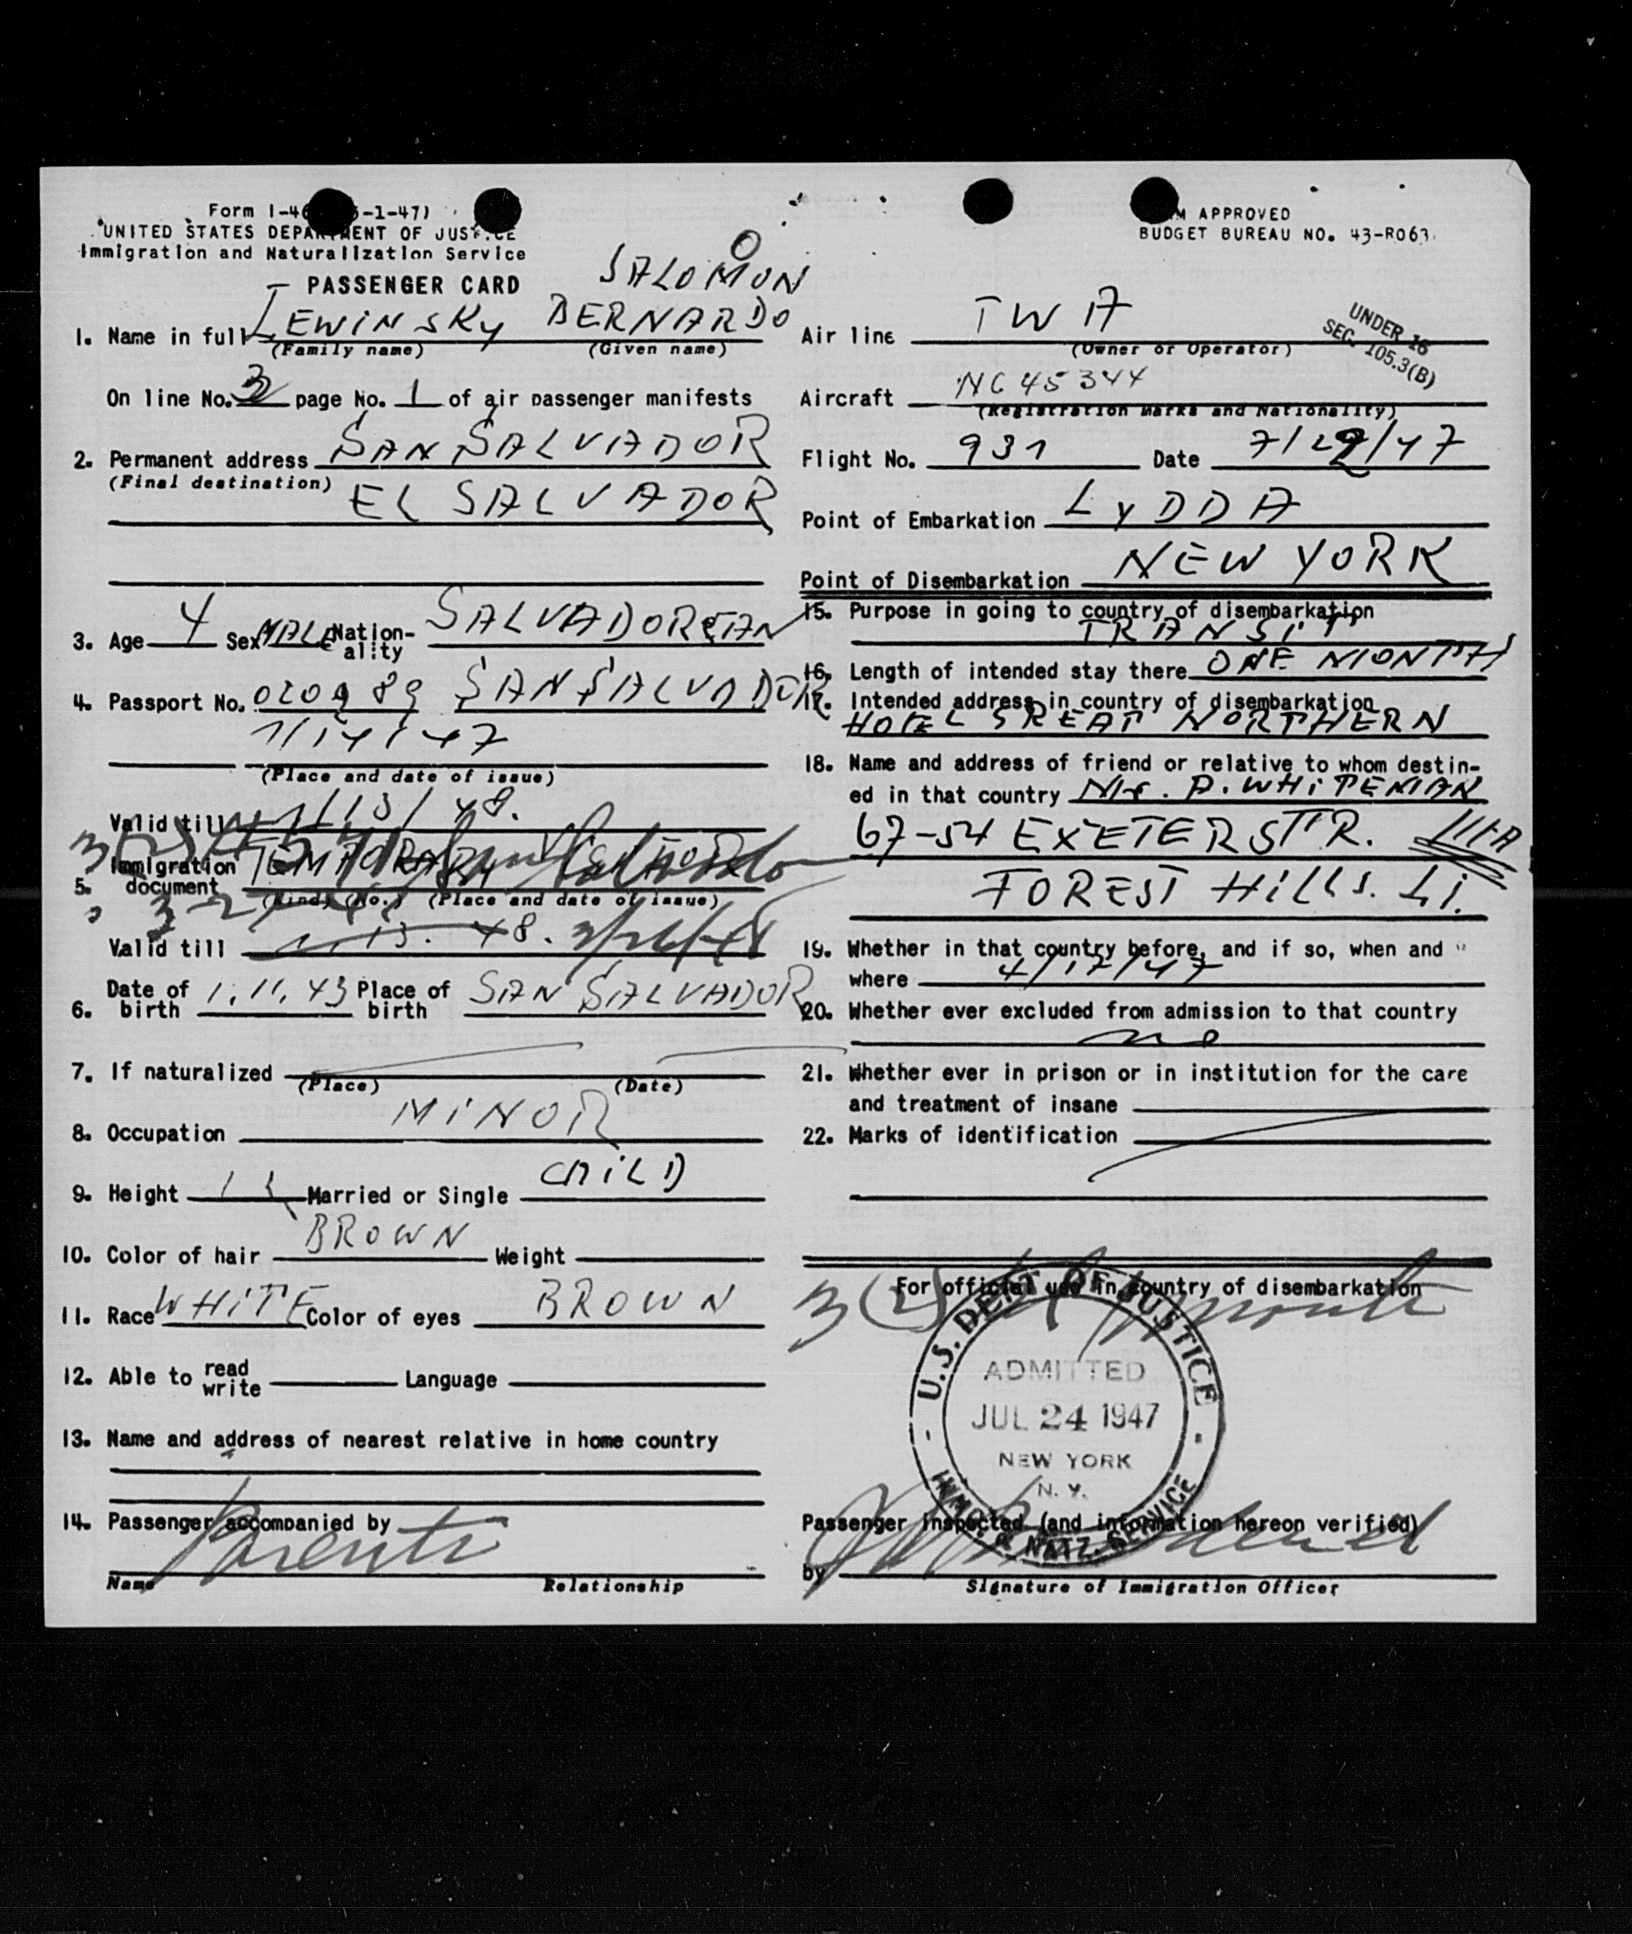 Form I-4 -1-47)
UNITED STATES DEPARTMENT OF JUSTICE
Immigration and Naturalization Service
PASSENGER CARD
FORM APPROVED
BUDGET BUREAU NO. 43-R063.
SALOMON
1. Name in full LEWINSKY BERNARDO
(Family name) (Given name)
On line No. 3 page No. 1 of air passenger manifests
2. Permanent address SAN SALVADOR
(Final destination) EL SALVADOR
3. Age 4 Sex MALE Nation-
ality SALVADOREAN
4. Passport No. 020989 SAN SALVADOR
1/14/47
(Place and date of issue)
Valid till 1/13/48.
5. Immigration
document TEMPORARY VISITOR
(Kind) (No.) (Place and date of issue)
Valid till 1.13.48.
6. Date of
birth 1.11.43 Place of
birth SAN SALVADOR
7. If naturalized
(Place) (Date)
8. Occupation MINOR
9. Height Married or Single CHILD
10. Color of hair BROWN Weight
11. Race WHITE Color of eyes BROWN
12. Able to read
write Language
13. Name and address of nearest relative in home country
14. Passenger accompanied by
Parents
Name Relationship
Air line TWA
(Owner or Operator)
UNDER 16
SEC. 105.3(B)
Aircraft NC45344
(Registration Marks and Nationality)
Flight No. 931 Date 7/22/47
Point of Embarkation LYDDA
Point of Disembarkation NEW YORK
15. Purpose in going to country of disembarkation
TRANSIT
16. Length of intended stay there ONE MONTH
17. Intended address in country of disembarkation
HOTEL GREAT NORTHERN
18. Name and address of friend or relative to whom destin-
ed in that country Mr. D. WHITEMAN
67-54 EXETER STR.
FOREST HILLS. L.I.
19. Whether in that country before, and if so, when and
where 4/17/47
20. Whether ever excluded from admission to that country
no
21. Whether ever in prison or in institution for the care
and treatment of insane
22. Marks of identification
For official use in country of disembarkation
3(2)
U.S. DEPT. OF JUSTICE
ADMITTED
JUL 24 1947
NEW YORK
N. Y.
IMM. & NATZ. SERVICE
Passenger inspected (and information hereon verified)
by
Signature of Immigration Officer